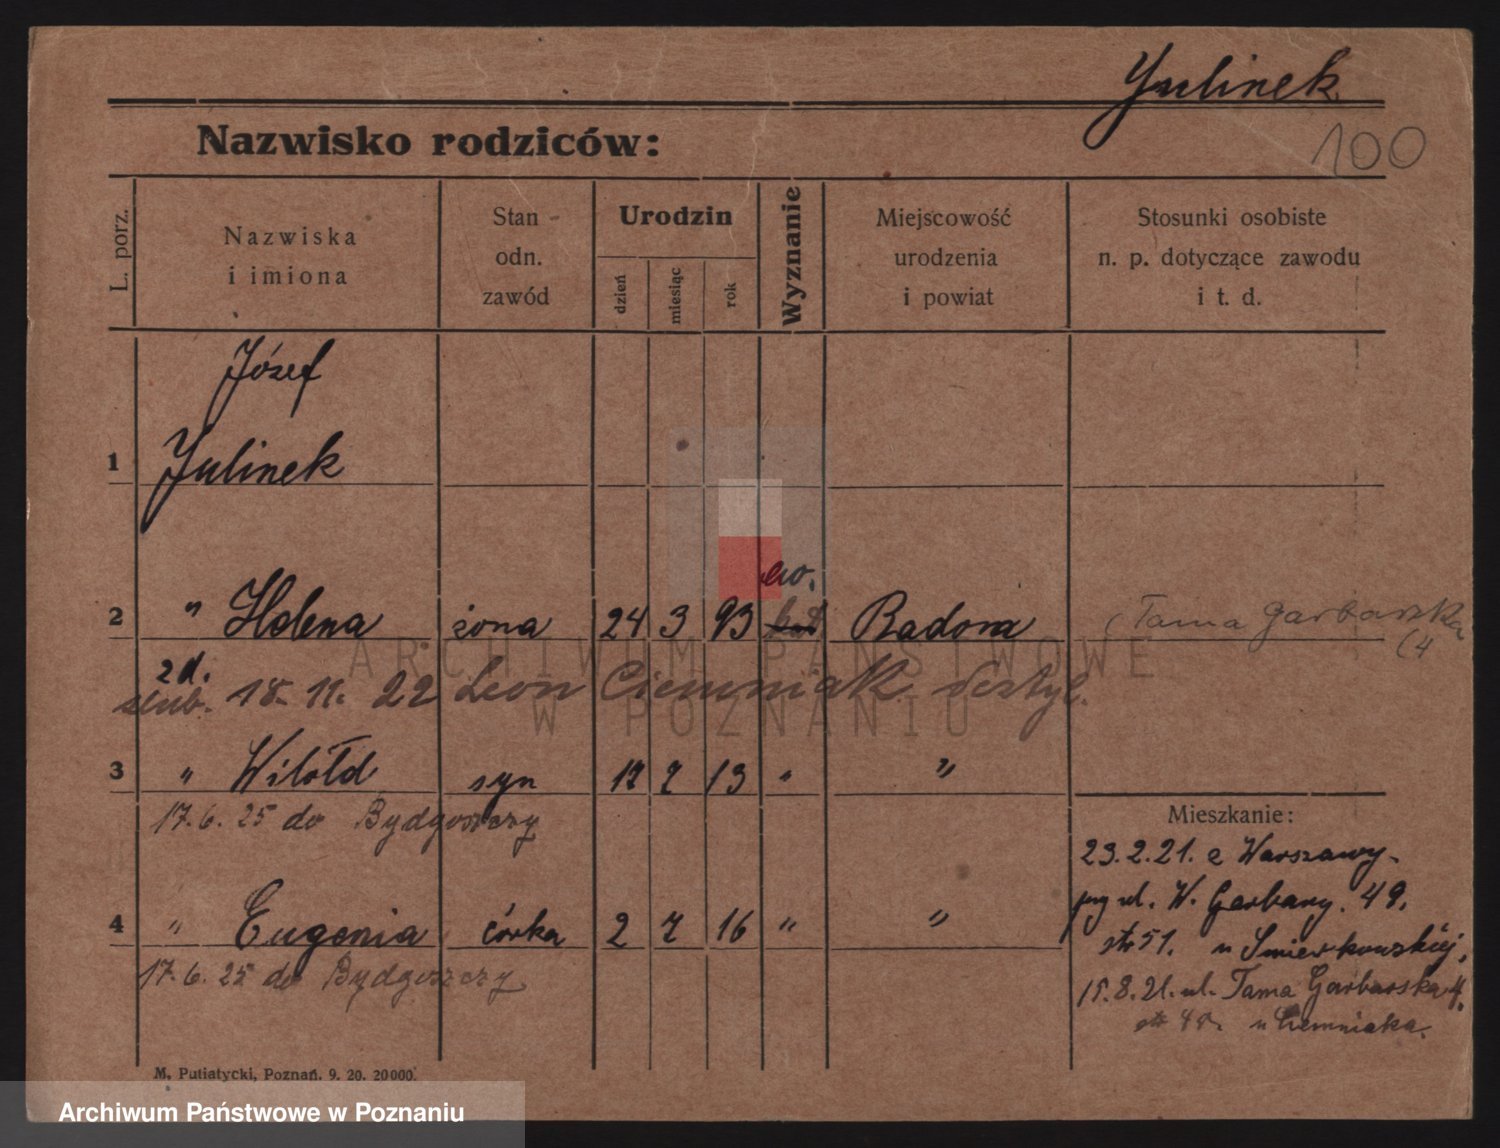 Julinek
100
Nazwisko rodziców:
L. porz.
Nazwiska
i imiona
Stan
odn.
zawód
Urodzin
dzień
miesiąc
rok
Wyznanie
Miejscowość
urodzenia
i powiat
Stosunki osobiste
n. p. dotyczące zawodu
i t. d.
Józef
1 Julinek
ew.
2 " Helena żona 24 3 93 kat Badora Tama Garbarska
4
zd.
ślub. 18. 11. 22 Leon Ciemniak
3 " Witołd syn 17 7 13 " "
17. 6. 25 do Bydgoszczy
Mieszkanie:
23. 2. 21. z Warszawy
4 " Eugenia córka 2 7 16 " "
17. 6. 25 do Bydgoszczy
przy ul. W. Garbary. 49.
str 51. u
15. 8. 21. ul. Tama Garbarska 4.
u Ciemniaka.
M. Putiatycki, Poznań. 9. 20. 20000.
ARCHIWUM PAŃSTWOWE
W POZNANIU
Archiwum Państwowe w Poznaniu